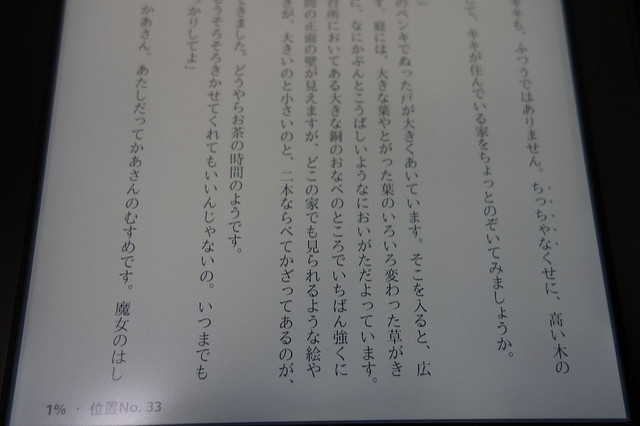 キも、ふつうではありません。ちっちゃなくせに、高い木の
て、キキが住んでいる家をちょっとのぞいてみましょうか。
」
のペンキでぬった戸が大きくあいています。そこを入ると、広
す。庭には、大きな葉やとがった葉のいろいろ変わった草がき
に、なにかぷんとこうばしいようなにおいがただよっています。
台所においてある大きな銅のおなべのところでいちばん強くに
間の正面の壁が見えますが、どこの家でも見られるような絵や
きが、大きいのと小さいのと、二本ならべてかざってあるのが、
できました。どうやらお茶の時間のようです。
もうそろそろきかせてくれてもいいんじゃないの。いつまでも
っかりしてよ」
かあさん。あたしだってかあさんのむすめです。魔女のはし
1% · 位置No. 33